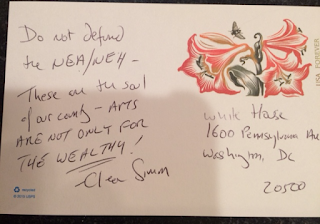 Do not defund
the NEA/NEH -
These are the soul
of our country - ARTS
ARE NOT ONLY FOR
THE WEALTHY!
Clea Simon
USA FOREVER
White House
1600 Pennsylvania Ave
Washington, DC
20500